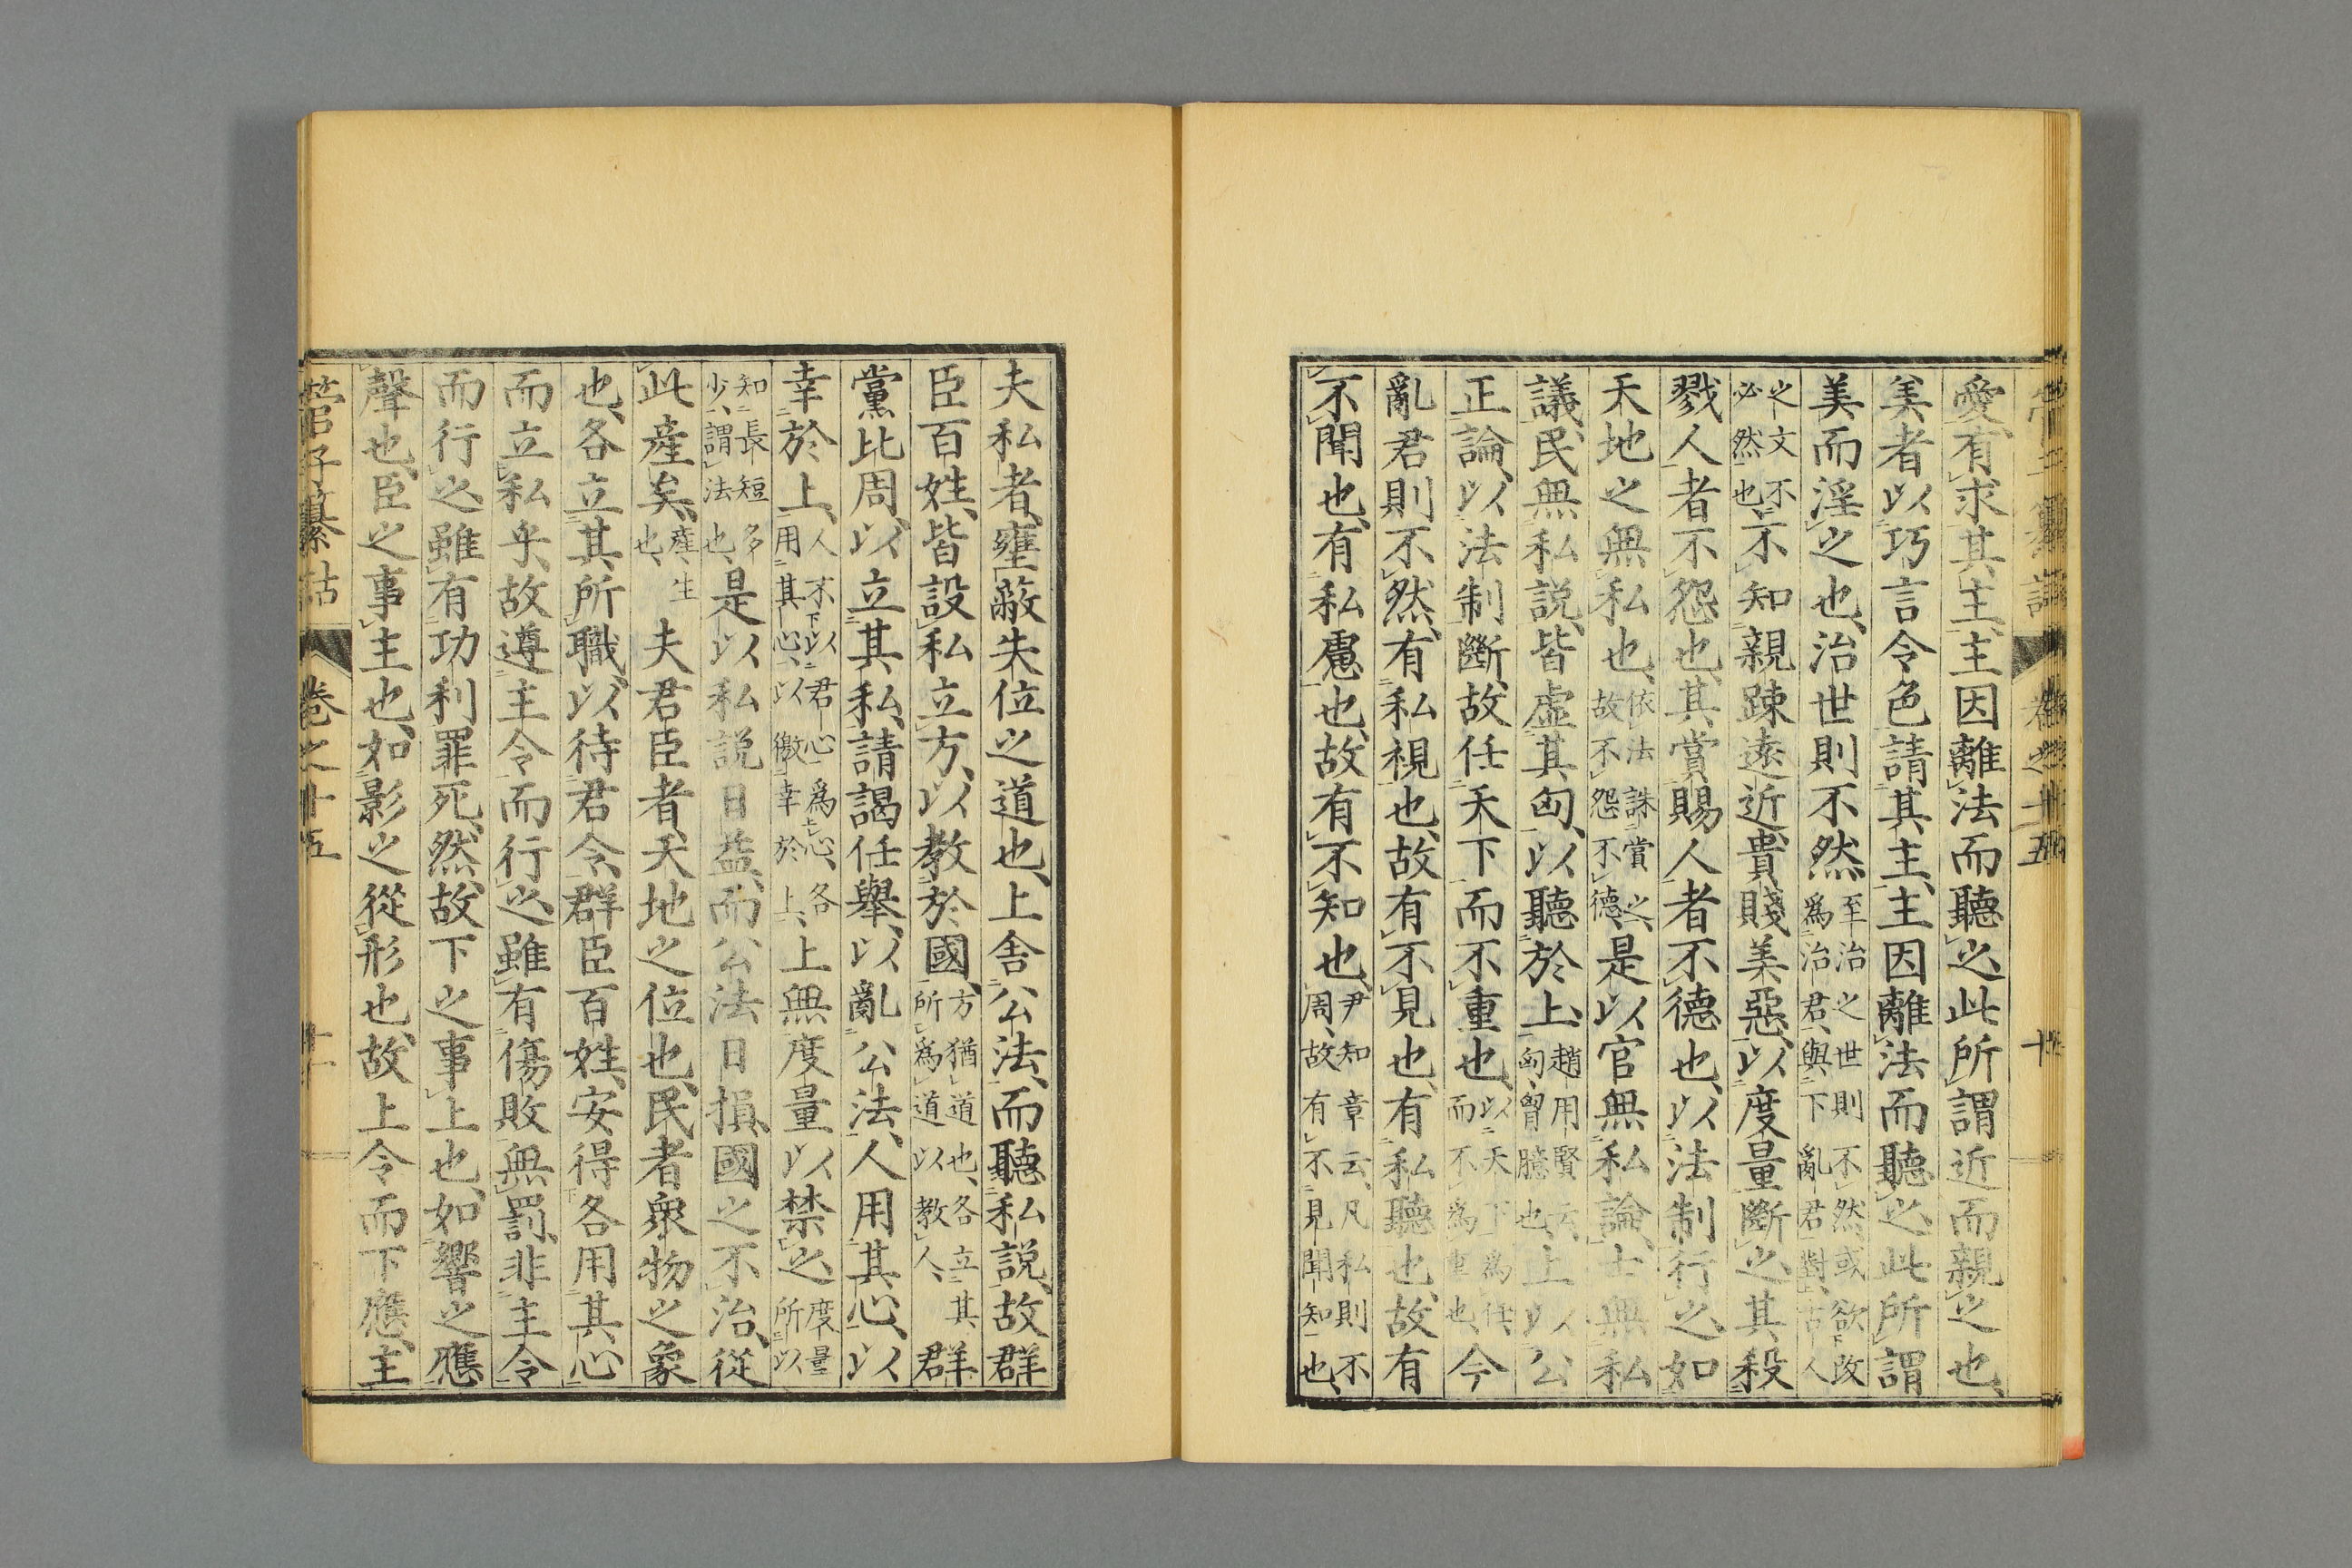 愛、有求其主、主因離法而聽之、此所謂近而親之也、
美者以巧言令色請其主、主因離法而聽之、此所謂
美而淫之也、治世則不然、至治之世則不然、或欲改爲治君、與下亂君對上、古人
之文、不必然也、不知親疎遠近貴賤美惡、以度量斷之、其殺
戮人者不怨也、其賞賜人者不德也、以法制行之、如
天地之無私也、依法誅賞之、故不怨不德、是以官無私論、士無私
議、民無私説、皆虛其匈、以聽於上、趙用賢云、匈、胷臆也、上以公
正論、以法制斷、故任天下而不重也、以天下爲任、而不爲重也、今
亂君則不然、有私視也、故有不見也、有私聽也、故有
不聞也、有私慮也、故有不知也、尹知章云、凡私則不周、故有不見聞知也、
夫私者、壅蔽失位之道也、上舍公法、而聽私説、故群
臣百姓、皆設私立方、以教於國、方猶道也、各立其所爲道以教人、群
黨比周、以立其私、請謁任舉、以亂公法、人用其心、以
幸於上、人不下以君心爲上心、各用其心、以徼幸於上、上無度量以禁之、度量所以
知長短多少、謂法也、是以私説日益、而公法日損、國之不治、從
此產矣、產生也、夫君臣者、天地之位也、民者衆物之象
也、各立其所職、以待君令、群臣百姓、安得各用其心
而立私乎、故遵主令而行之、雖有傷敗無罰、非主令
而行之、雖有功利罪死、然故下之事上也、如響之應
聲也、臣之事主也、如影之從形也、故上令而下應、主
管子纂詁 卷之十五 十一